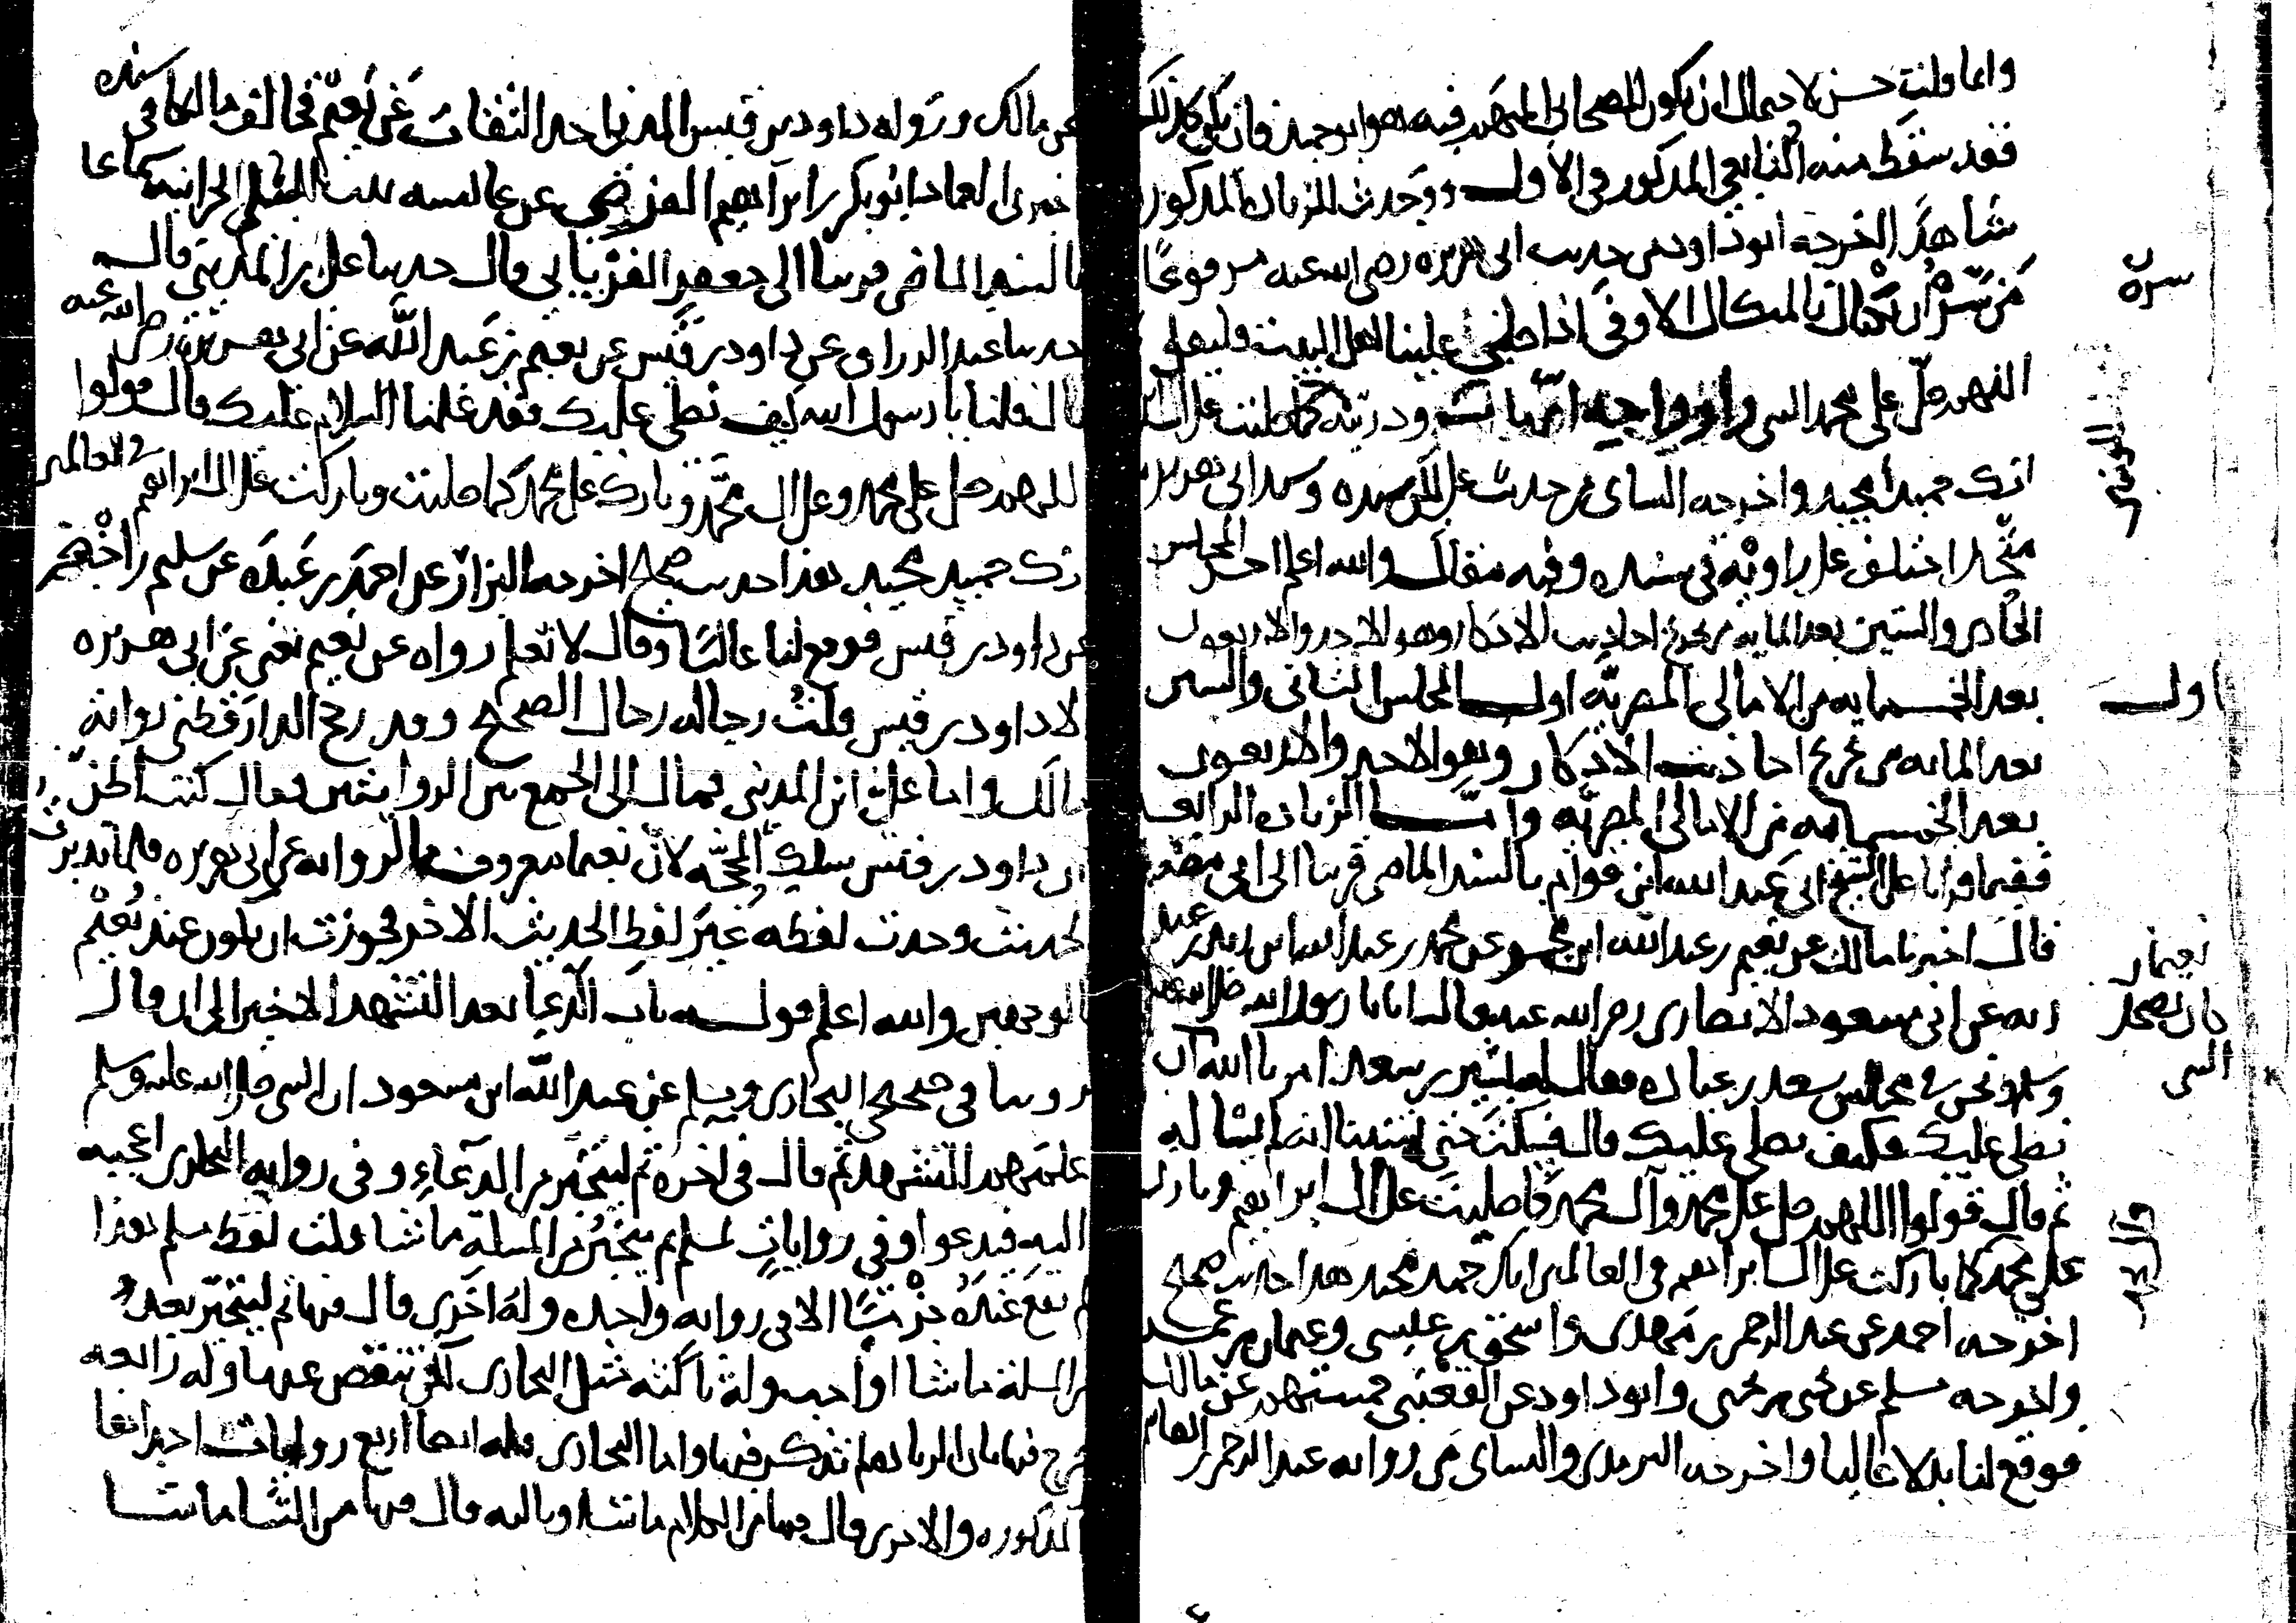 وانما قلت حسن لاحتمال ان يكون الصحابي المبهم فيه هو ابو حميد فان يكن كذلك
فقد سقط منه التابعي المذكور في الاول ووجدت للزيادة المذكورة
شاهدا اخرجه ابو داود من حديث ابي هريرة رضي الله عنه مرفوعا
من سره ان يكتال بالمكيال الاوفى اذا صلى علينا اهل البيت فليقل
اللهم صل على محمد النبي وازواجه امهات وذريته كما صليت على ال
انك حميد مجيد واخرجه النساي من حديث علي لكن سنده وسند ابي هريرة
متحد اختلف على راويه في سنده وفيه مقال والله اعلم اخر المجلس
الحادي والستين بعد المايه من تخريج احاديث الاذكار وهو الاحد والاربعون
بعد الخمسمايه من الامالي المصريه اول المجلس الثاني والستين
بعد المايه من تخريج احاديث الاذكار وهو الاحد والاربعون
بعد الخمسمايه من الامالي المصريه واما الزياده الرابعه
ففيما قرات على الشيخ ابي عبد الله ابن قوام بالسند الماضي قريبا الى ابي مصعب
قال اخبرنا مالك عن نعيم بن عبد الله المجمر عن محمد بن عبد الله بن زيد بن عبد
ربه عن ابي مسعود الانصاري رضي الله عنه قال اتانا رسول الله صلى الله عليه
وسلم ونحن في مجلس سعد بن عباده فقال له بشير بن سعد امرنا الله ان
نصلي عليك فكيف نصلي عليك قال فسكت حتى تمنينا انه لم يساله
ثم قال قولوا اللهم صل على محمد وآل محمد كما صليت على ال ابراهيم وبارك
على محمد كما باركت على ال ابراهيم في العالمين انك حميد مجيد هذا حديث صحيح
اخرجه احمد عن عبد الرحمن بن مهدي واسحق بن عيسى وعثمان بن عمر
واخرجه مسلم عن يحيى بن يحيى وابو داود عن القعنبي خمستهم عن مالك
فوقع لنا بدلا عاليا واخرجه الترمذي والنساي من رواية عبد الرحمن بن القاسم
سره
اول
كان يصحل
النبي
عن مالك ورواه داود بن قيس المدني احد الثقات عن نعيم فخالف مالكا في سنده
اخبرني العماد ابو بكر بن ابراهيم الفرضي عن عائشه بنت المسلم الحرانيه سماعا
بالسند الماضي قريبا الى جعفر الفريابي قال حدثنا علي بن المديني قال
حدثنا عبد الرزاق عن داود بن قيس عن نعيم بن عبد الله عن ابي هريرة رضي الله عنه
قال قلنا يا رسول الله كيف نصلي عليك فقد علمنا السلام عليك قال قولوا
اللهم صل على محمد وعلى ال محمد وبارك على محمد كما صليت وباركت على ال ابراهيم في العالمين
انك حميد مجيد هذا حديث صحيح اخرجه البزار عن احمد بن عبدة عن سليم بن اخضر
عن داود بن قيس فوقع لنا عاليا وقال لا نعلم رواه عن نعيم يعني عن ابي هريره
الا داود بن قيس قلت رجاله رجال الصحيح وقد رجح الدارقطني رواية
مالك واما علي ابن المديني فمال الى الجمع بين الروايتين فقال كنت اظن
ان داود بن قيس سلك المحجه لان نعيما معروف بالرواية عن ابي هريره فلما تدبرت
الحديث وجدت لفظه غير لفظ الحديث الاخر فجوزت ان يكون عند نعيم
بالوجهين والله اعلم قوله باب الدعا بعد التشهد الاخير الى ان قال
روينا في صحيحي البخاري ومسلم عن عبد الله ابن مسعود ان النبي صلى الله عليه وسلم
علمهم التشهد ثم قال في اخره ثم ليتخير من الدعاء وفي رواية البخاري اعجبه
اليه فيدعوا وفي روايات لمسلم ثم يتخير من المسلة ما شا قلت لفظ مسلم هذا
لم يقع عنده الا في روايه واحده وله اخرى قال فيها ثم ليتخير بعد
من المسلة ما شا او احب وله ثالثه مثل البخاري لكن تنقص عنها وله رابعه
صرح فيها بان الزياده لم تذكر فيها واما البخاري فله ايضا اربع روايات احداها
المذكوره والاخرى قال فيها من الكلام ما شا وثالثه قال فيها من الثنا ما شا